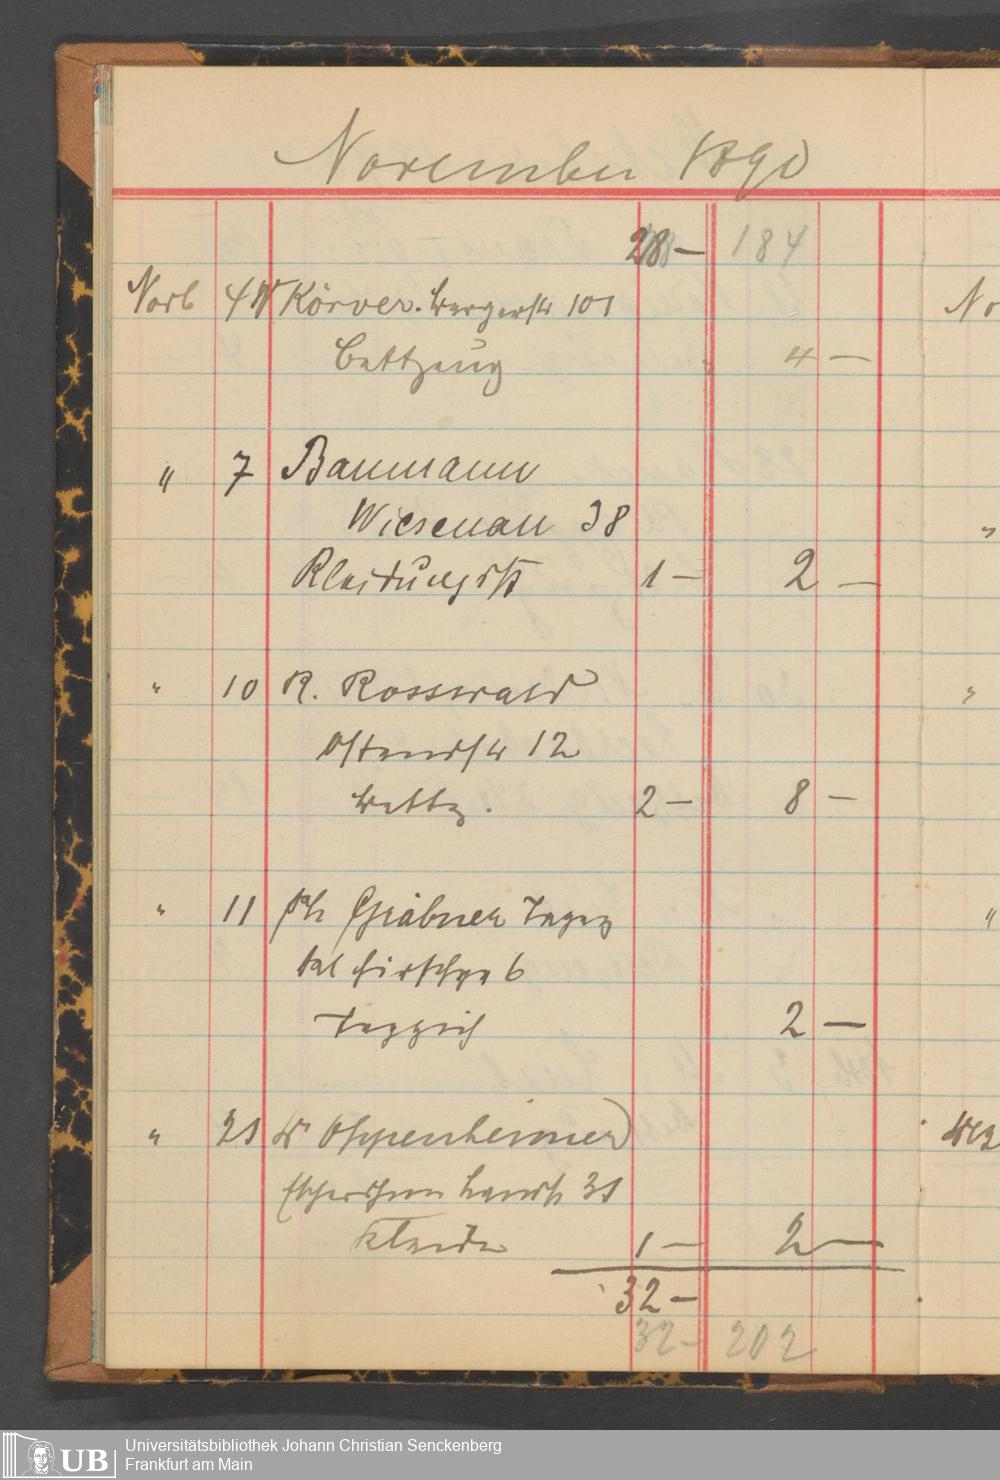 November 1890
28 — 184
Novb 4 W Körver. Bergerstr 101
Bettzeug 4 —
" 7 Baumann
Wiesenau 38
Kleidungsst 1 — 2 —
" 10 R. Rosswald
Ostendstr 12
Bettz. 2 — 8 —
" 11 Ph Gräbner Tapez
6
Teppich 2 —
" 21 W Oppenheimer
Eschersheim Landst 31
Kleider 1 — 2 —
32 —
32 — 202
No
"
"
"
Dez
UB Universitätsbibliothek Johann Christian Senckenberg
Frankfurt am Main